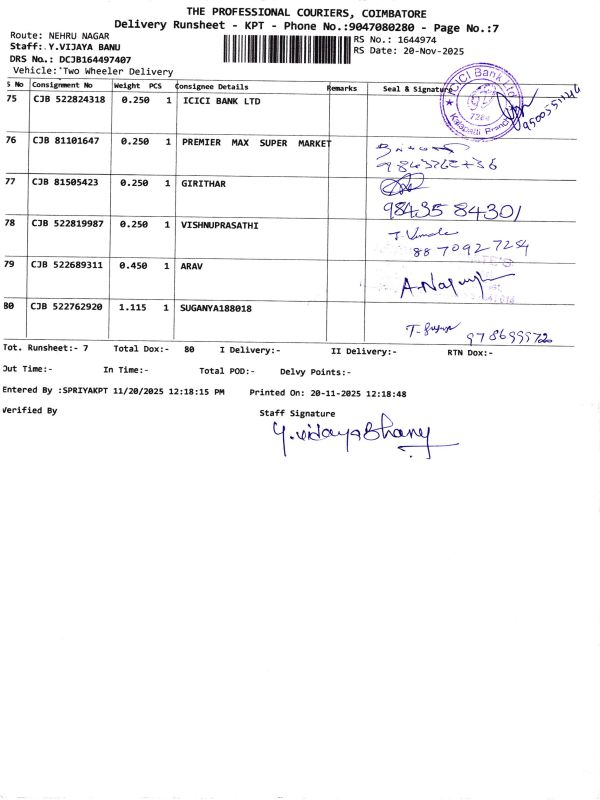 THE PROFESSIONAL COURIERS, COIMBATORE
Delivery Runsheet - KPT - Phone No.:9047080280 - Page No.:7
Route: NEHRU NAGAR
RS No.: 1644974
Staff: Y.VIJAYA BANU
RS Date: 20-Nov-2025
DRS No.: DCJB164497407
Vehicle: Two Wheeler Delivery
S No Consignment No Weight PCS Consignee Details Remarks Seal & Signature
75 CJB 522824318 0.250 1 ICICI BANK LTD
ICICI Bank Ltd
7264
Kalapatti Branch
76 CJB 81101647 0.250 1 PREMIER MAX SUPER MARKET
77 CJB 81505423 0.250 1 GIRITHAR
98435 84301
78 CJB 522819987 0.250 1 VISHNUPRASATHI
88 70927254
79 CJB 522689311 0.450 1 ARAV
80 CJB 522762920 1.115 1 SUGANYA188018
Tot. Runsheet:- 7 Total Dox:- 80 I Delivery:- II Delivery:- RTN Dox:-
Out Time:- In Time:- Total POD:- Delvy Points:-
Entered By :SPRIYAKPT 11/20/2025 12:18:15 PM Printed On: 20-11-2025 12:18:48
Verified By Staff Signature
Y.VijayaBhany